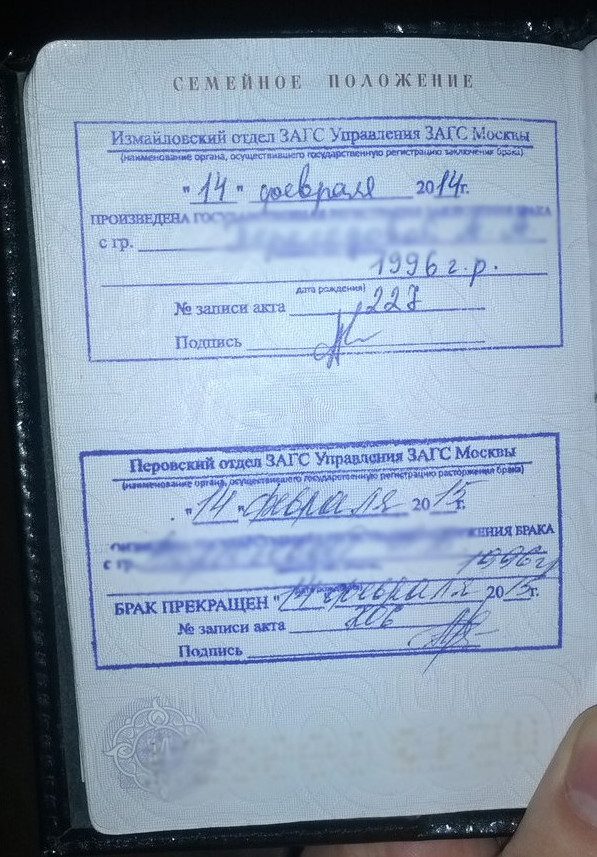 СЕМЕЙНОЕ ПОЛОЖЕНИЕ
Измайловский отдел ЗАГС Управления ЗАГС Москвы
(наименование органа, осуществившего государственную регистрацию заключения брака)
"14" февраля 2014г.
ПРОИЗВЕДЕНА ГОСУДАРСТВЕННАЯ БРАКА
с гр.
1996 г.р.
дата рождения)
№ записи акта 227
Подпись
Перовский отдел ЗАГС Управления ЗАГС Москвы
(наименование органа, осуществившего государственную регистрацию расторжения брака)
"14" февраля 2015г.
ЖЕНИЯ БРАКА
с гр.
1996г
БРАК ПРЕКРАЩЕН "14 февраля 2015г.
№ записи акта 206
Подпись